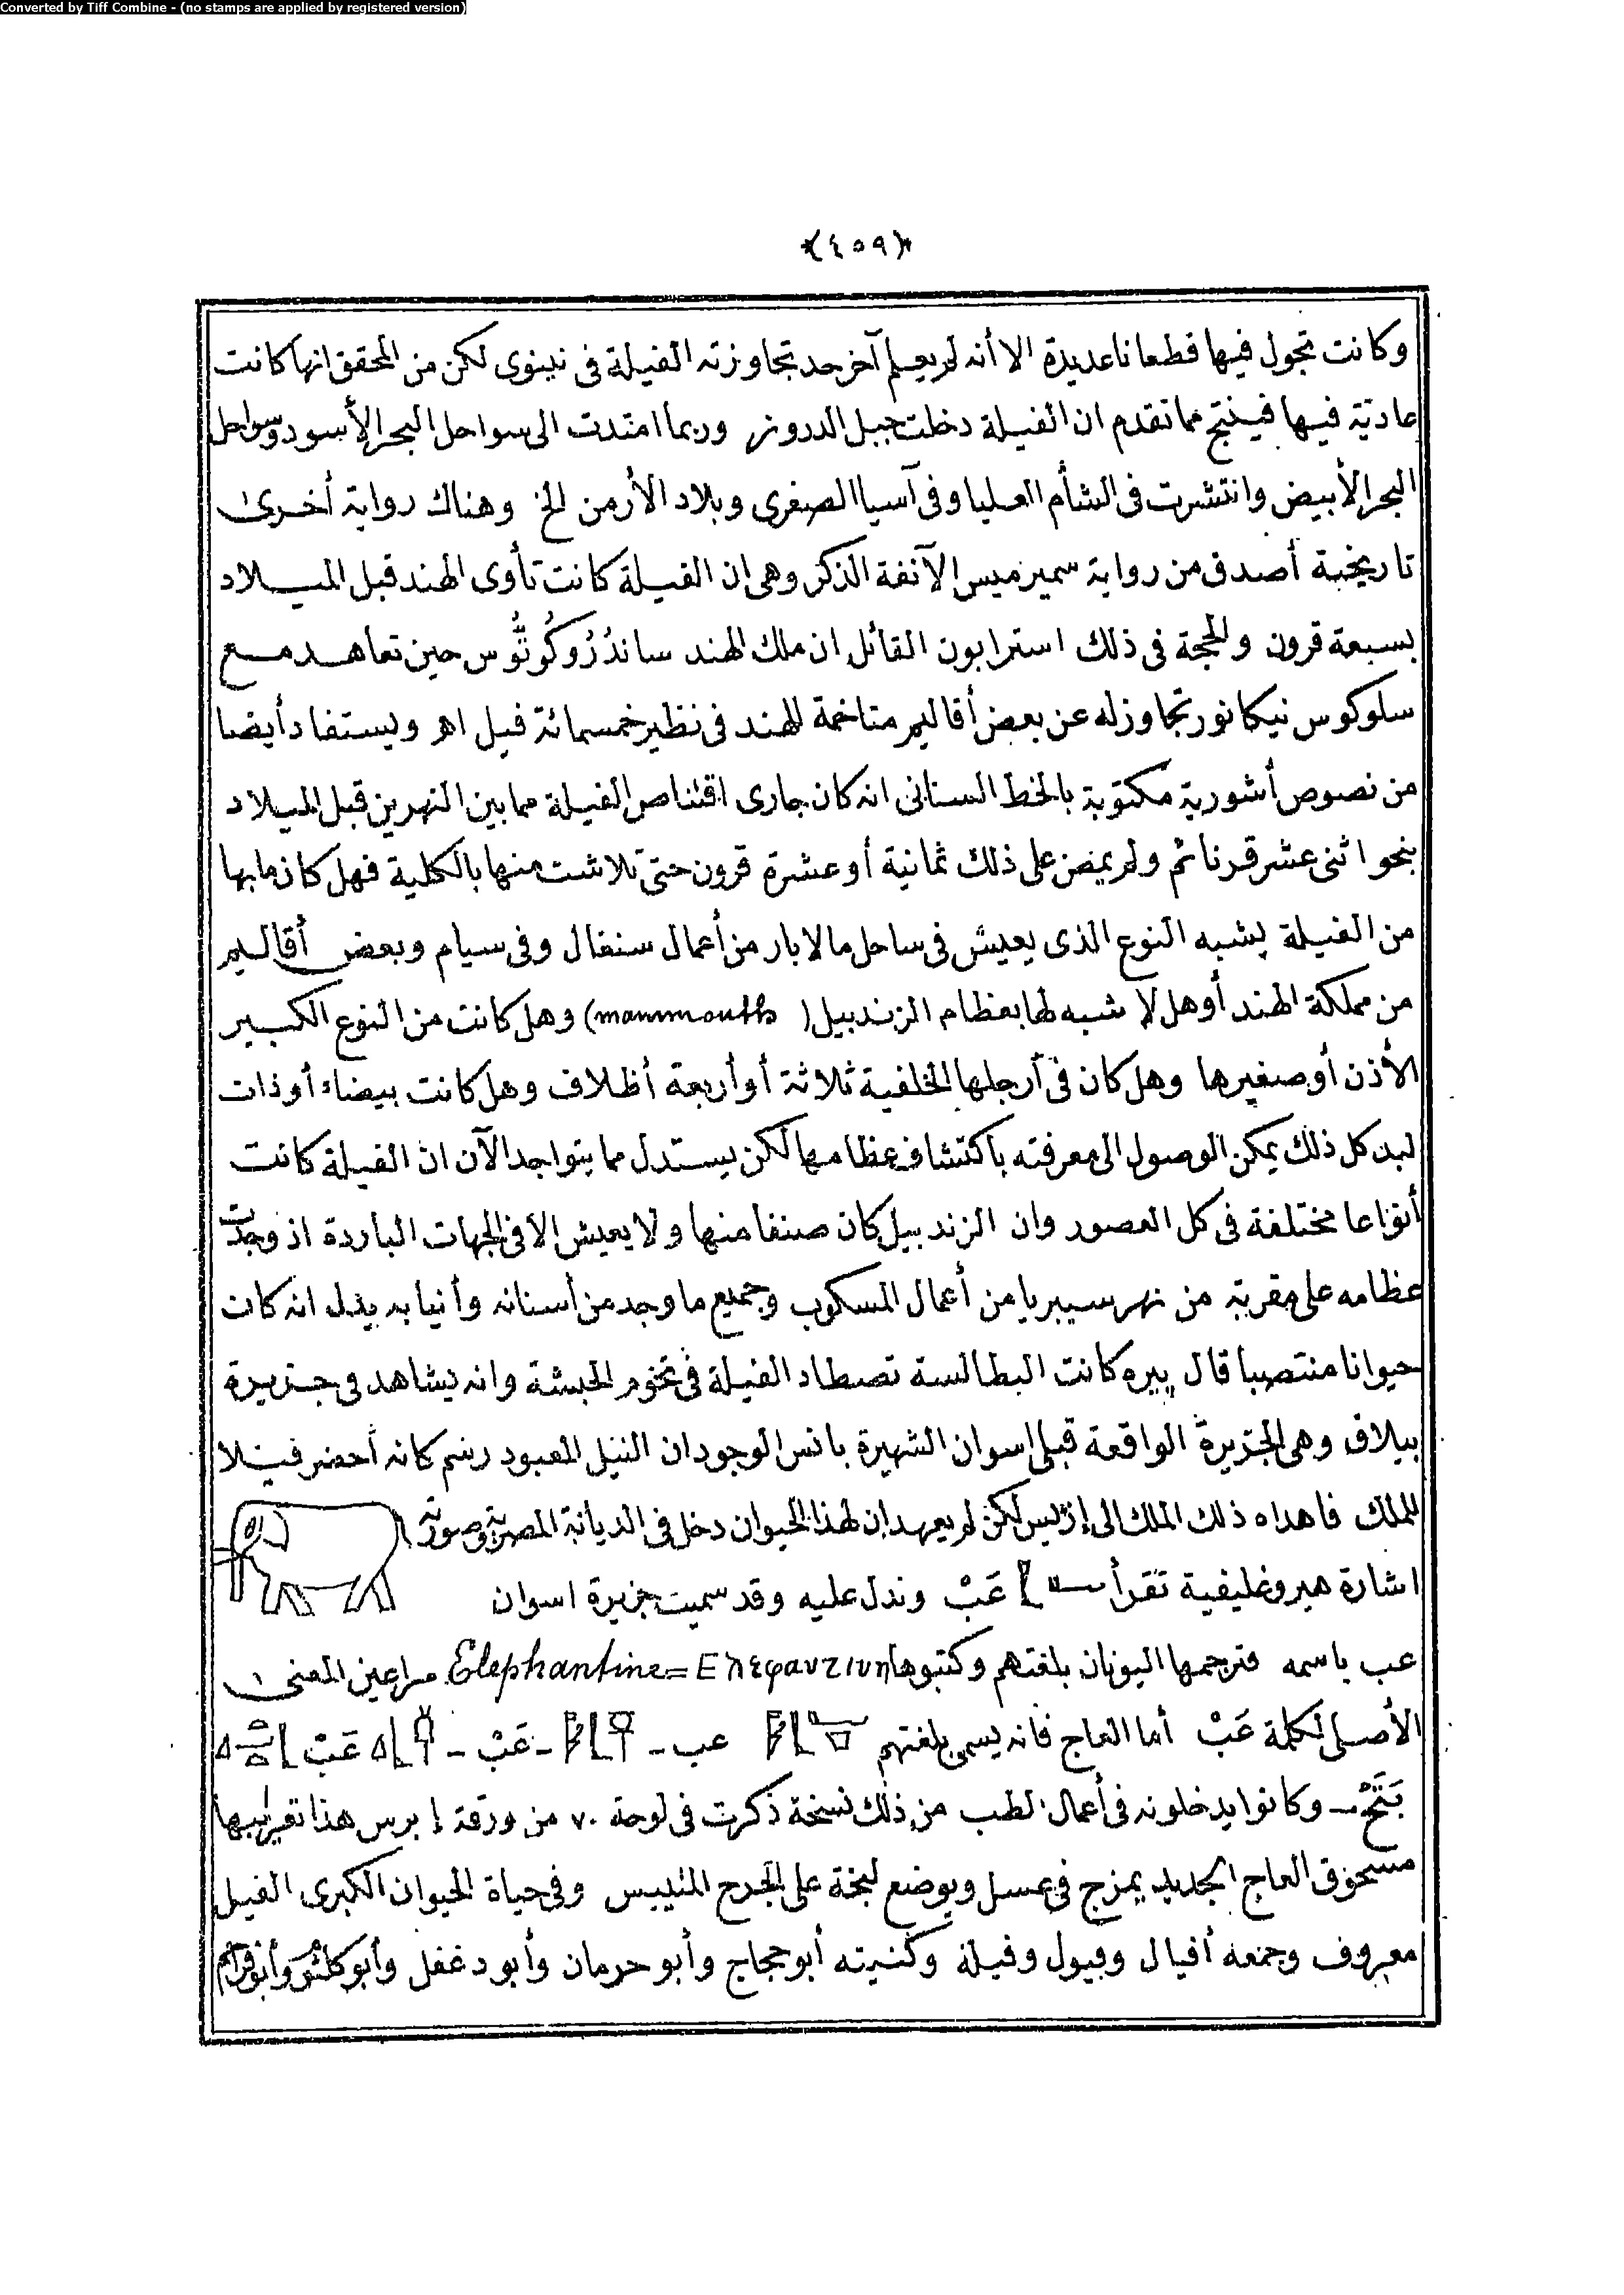 Converted by Tiff Combine - (no stamps are applied by registered version)
*(٤٥٩)*
وكانت تجول فيها قطعانا عديدة الا أنه لم يعلم آخر حد تجاوزته الفيلة فى نينوى لكن من المحقق انها كانت
عادتة فيها فينتج مما تقدم ان الفيلة دخلت جبل الدروز وربما امتدت الى سواحل البحر الأسود وسواحل
البحر الأبيض وانتشرت فى الشأم العليا وفى آسيا الصغرى وبلاد الأرمن الخ وهناك رواية أخرى
تاريخية أصدق من رواية سميرميس الآنفة الذكر وهى ان الفيلة كانت تأوى الهند قبل الميلاد
بسبعة قرون والحجة فى ذلك استرابون القائل ان ملك الهند ساندُرُوكُوتُّوس حين تعاهد مع
سلوكوس نيكانور تجاوز له عن بعض أقاليم متاخمة للهند فى نظير خمسمائة فيل اهـ ويستفاد أيضا
من نصوص أشورية مكتوبة بالخط السنانى انه كان جارى اقتناص الفيلة مما بين النهرين قبل الميلاد
بنحو اثنى عشر قرنا ثم ولم يمض على ذلك ثمانية أو عشرة قرون حتى تلاشت منها بالكلية فهل كان ما بها
من الفيلة يشبه النوع الذى يعيش فى ساحل مالابار من أعمال سنغال وفى سيام وبعض أقاليم
من مملكة الهند أو هل لا شبه لها بعظام الزندبيل (mammouth) وهل كانت من النوع الكبير
الأذن أو صغيرها وهل كان فى أرجلها الخلفية ثلاثة أو أربعة أظلاف وهل كانت بيضاء أو ذات
لبد كل ذلك يمكن الوصول الى معرفته باكتشاف عظامها لكن يستدل مما يتواجد الآن ان الفيلة كانت
أنواعا مختلفة فى كل العصور وان الزندبيل كان صنفا منها ولا يعيش الا فى الجهات الباردة اذ وجدت
عظامه على مقربة من نهر سيبريا من أعمال المسكوب وجميع ما وجد من أسنانه وأنيابه يدل انه كان
حيوانا منتصبا قال پيره كانت البطالسة تصطاد الفيلة فى تخوم الحبشة وانه يشاهد فى جزيرة
بيلاق وهى الجزيرة الواقعة قبلى اسوان الشهيرة بانس الوجود ان النيل المعبود رسم كانه أحضر فيلا
للملك فاهداه ذلك الملك الى إزيس لكن لم يعهد ان لهذا الحيوان دخل فى الديانة المصرية وصورته
اشارة هيروغليفية تقرأ عَبْ وندل عليه وقد سميت جزيرة اسوان
عب باسمه فترجمها اليونان بلغتهم وكتبوها Elephantine = Ελεφαντινη مراعين المعنى
الأصلى لكلمة عَبْ أما العاج فانه يسمى بلغتهم عب - عَبْ - عَبْ
وكانوا يدخلونه فى أعمال الطب من ذلك نسخة ذكرت فى لوحة ٧٠ من ورقة إبرس هذا تعريبها
مسحوق العاج الجديد يمزج فى عسل ويوضع لبخة على الجرح وفى حياة الحيوان الكبرى الفيل
معروف وجمعه أفيال وفيول وفيلة وكنيته أبو حجاج وأبو حرمان وأبو دغفل وأبو كلثوم وأبو مزاحم